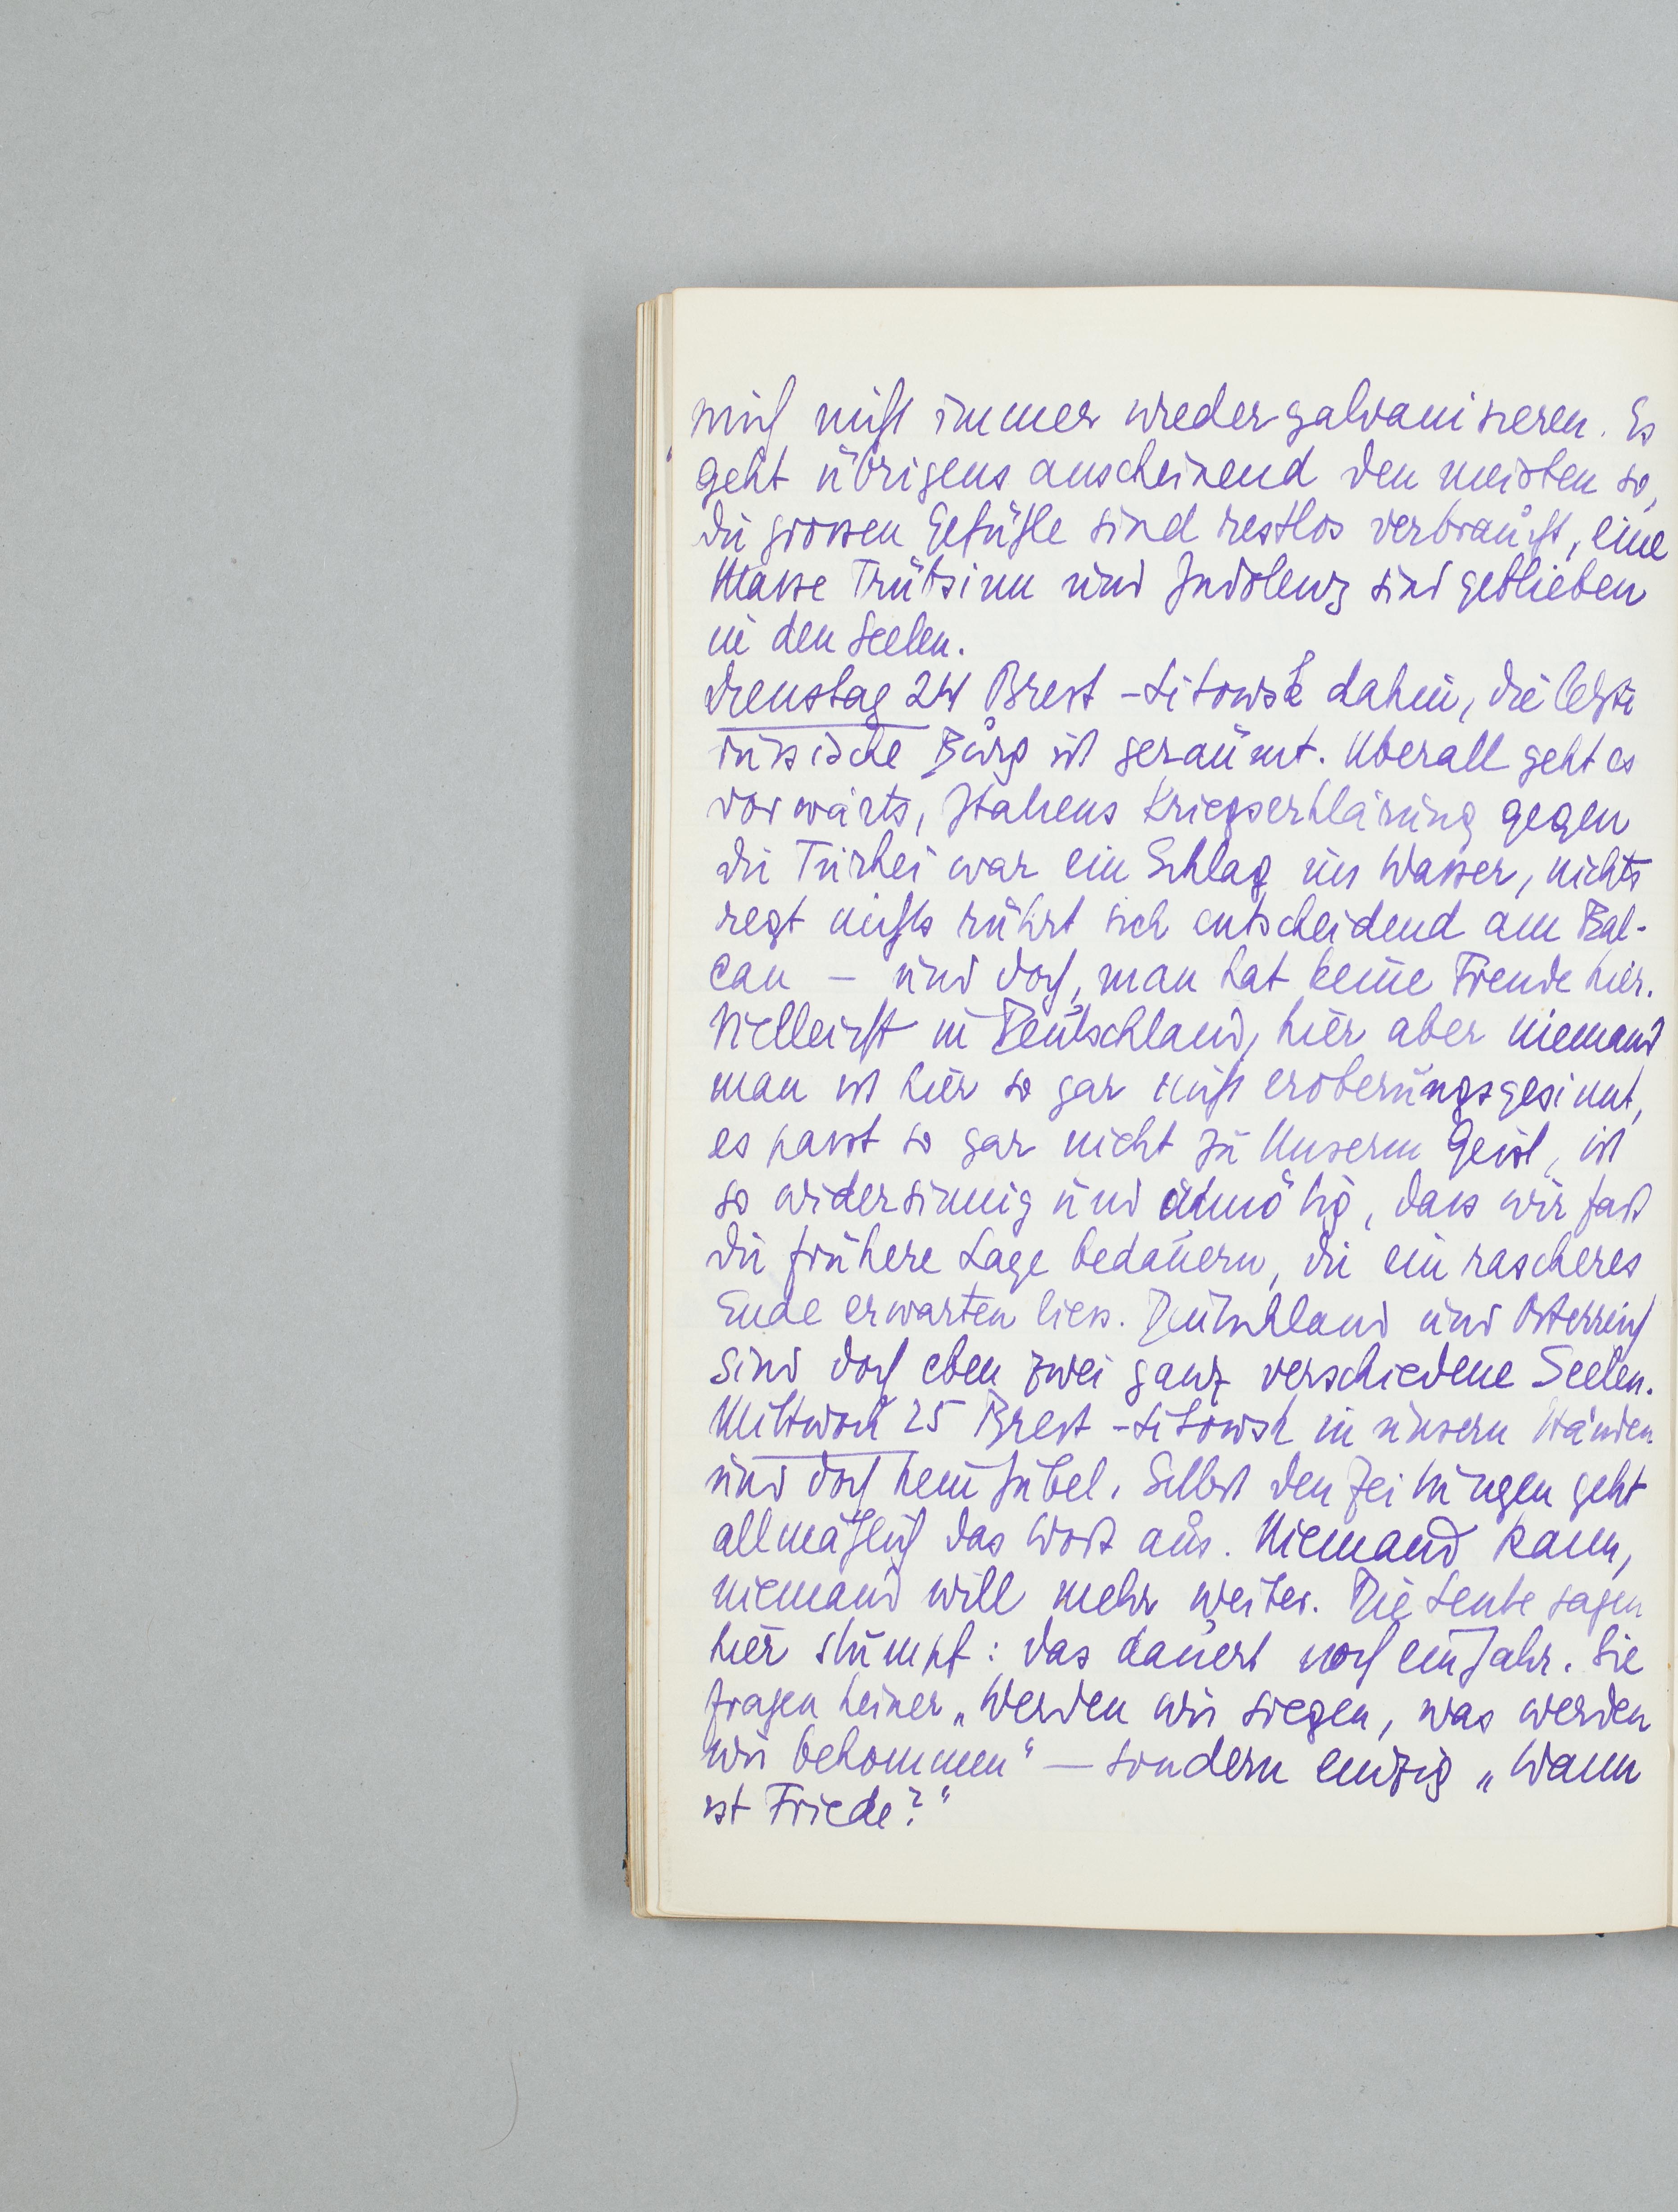 mich nicht immer wieder galvanisieren. Es
geht übrigens anscheinend den meisten so,
die grossen Gefühle sind restlos verbraucht, eine
Masse Trübsinn und Indolenz sind geblieben
in den Seelen.
Dienstag 24 Brest-Litowsk dahin, die letzte
russische Burg ist geräumt. Überall geht es
vorwärts, Italiens Kriegserklärung gegen
die Türkei war ein Schlag ins Wasser, nichts
regt nichts rührt sich entscheidend am Bal-
can – und doch, man hat keine Freude hier.
Vielleicht in Deutschland, hier aber niemand
man ist hier so gar nicht eroberungsgesinnt,
es passt so gar nicht zu Unserm Geist, ist
so widersinnig und unnötig, dass wir fast
die frühere Lage bedauern, die ein rascheres
Ende erwarten liess. Deutschland und Österreich
sind doch eben zwei ganz verschiedene Seelen.
Mittwoch 25 Brest-Litowsk in unsern Händen
und doch kein Jubel. Selbst den Zeitungen geht
allmählich das Wort aus. Niemand kann,
niemand will mehr weiter. Die Leute sagen
hier stumpf: das dauert noch ein Jahr. Sie
fragen keiner „Werden wir siegen, was werden
wir bekommen“ — sondern einzig „Wann
ist Friede?“